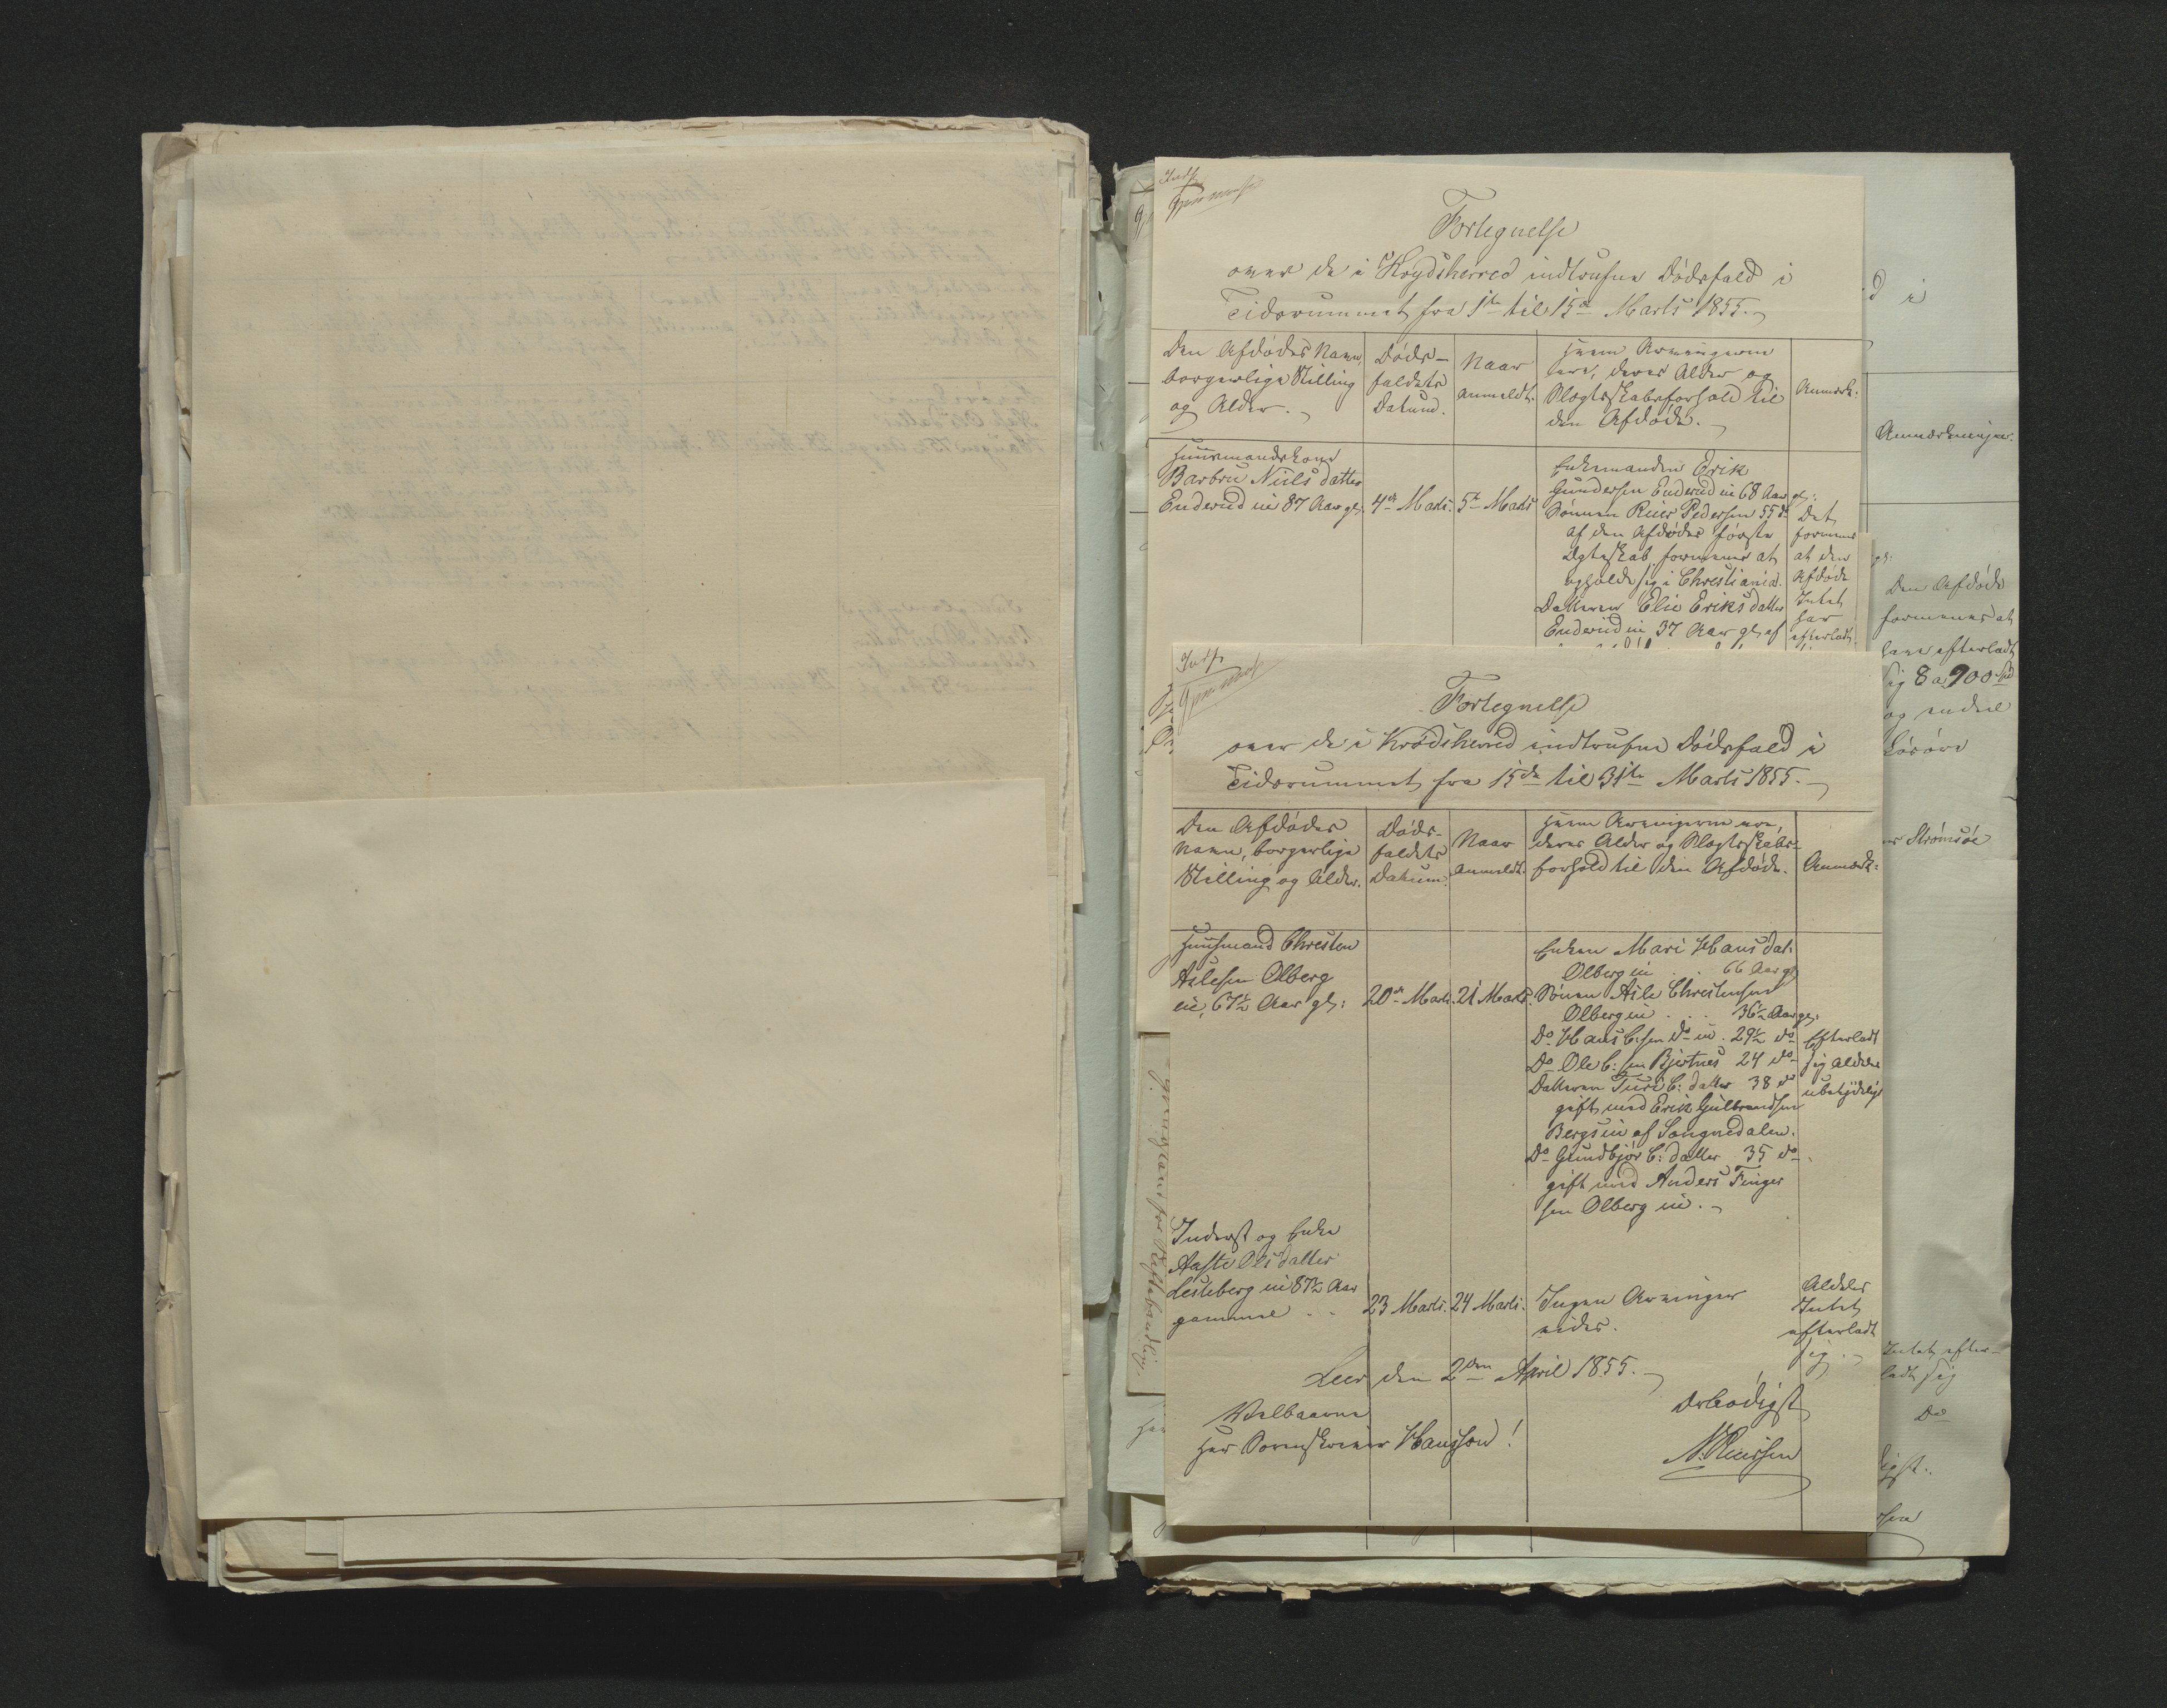 Indf.
Fortegnelse
over de i Krydsherred indtrufne Dödsfald i
Tidsrummet fra 1ste til 15de Marts 1855.
Den Afdödes Navn,
borgerlige Stilling
og Alder.
Döds-
faldets
Datum.
Naar
anmeldt.
Hvem Arvingerne
ere, deres Alder og
Slægtskabsforhold til
den Afdöde.
Anmærk:
Huusmandskone
Barbru Niels datter
Enderud eie 87 Aar gl.
4de Marts.
5te Marts
Enkemanden Erik
Gundersen Enderud eie 68 Aar gl:
Sönnen Reier Pedersen 55 do
af den Afdödes förste
Ægteskab formenes at
opholde sig i Christiania.
Datteren Elie Eriksdatter
Enderud eie 37 Aar gl. af
Det
formenes
at den
Afdöde
Intet
har
efterladt
Indf.
Fortegnelse
over de i Krödsherred indtrufne Dödsfald i
Tidsrummet fra 15de til 31te Marts 1855.
Den Afdödes
Navn, borgerlige
Stilling og Alder.
Döds-
faldets
Datum.
Naar
anmeldt.
Hvem Arvingerne ere,
deres Alder og Slægtskabs-
forhold til den Afdöde.
Anmærk:
Huusmand Christen
Aslesen Olberg
eie, 67½ Aar gl:
20de Marts.
21 Marts.
Enken Mari Hans dat:
Olberg eie . . 66 Aar gl
Sönnen Asle Christensen
Olberg eie . . . 36½ Aar gl:
Do Hans C:sen do eie . 29½ do
Do Ole C: sen Bjertnes 24 do
Datteren Turi C: datter 38 do
gift med Erik Gulbrandsen
Bergseie af Sognedalen.
Do Gundbjör C: datter 35 do
gift med Anders Finger
sen Olberg eie.
Efterladt
sig aldeles
ubetydeligt
Inderst og Enke
Aaste Ols datter
Lesteberg eie 87½ Aar
gammel . .
23 Marts.
24 Marts.
Ingen Arvinger
vides.
Aldeles
Intet
efterladt
sig.
Leer den 2den April 1855.
Velbaarne
Herr Sorenskriver Hansson!
Ærbödigst
d i
Anmærkninger.
gl:
Den Afdöde
formenes at
have efterladt
sig 8 a 900 Spd
og endeel
Lösöre
Strömsöe
Intet efter-
ladt sig
Do